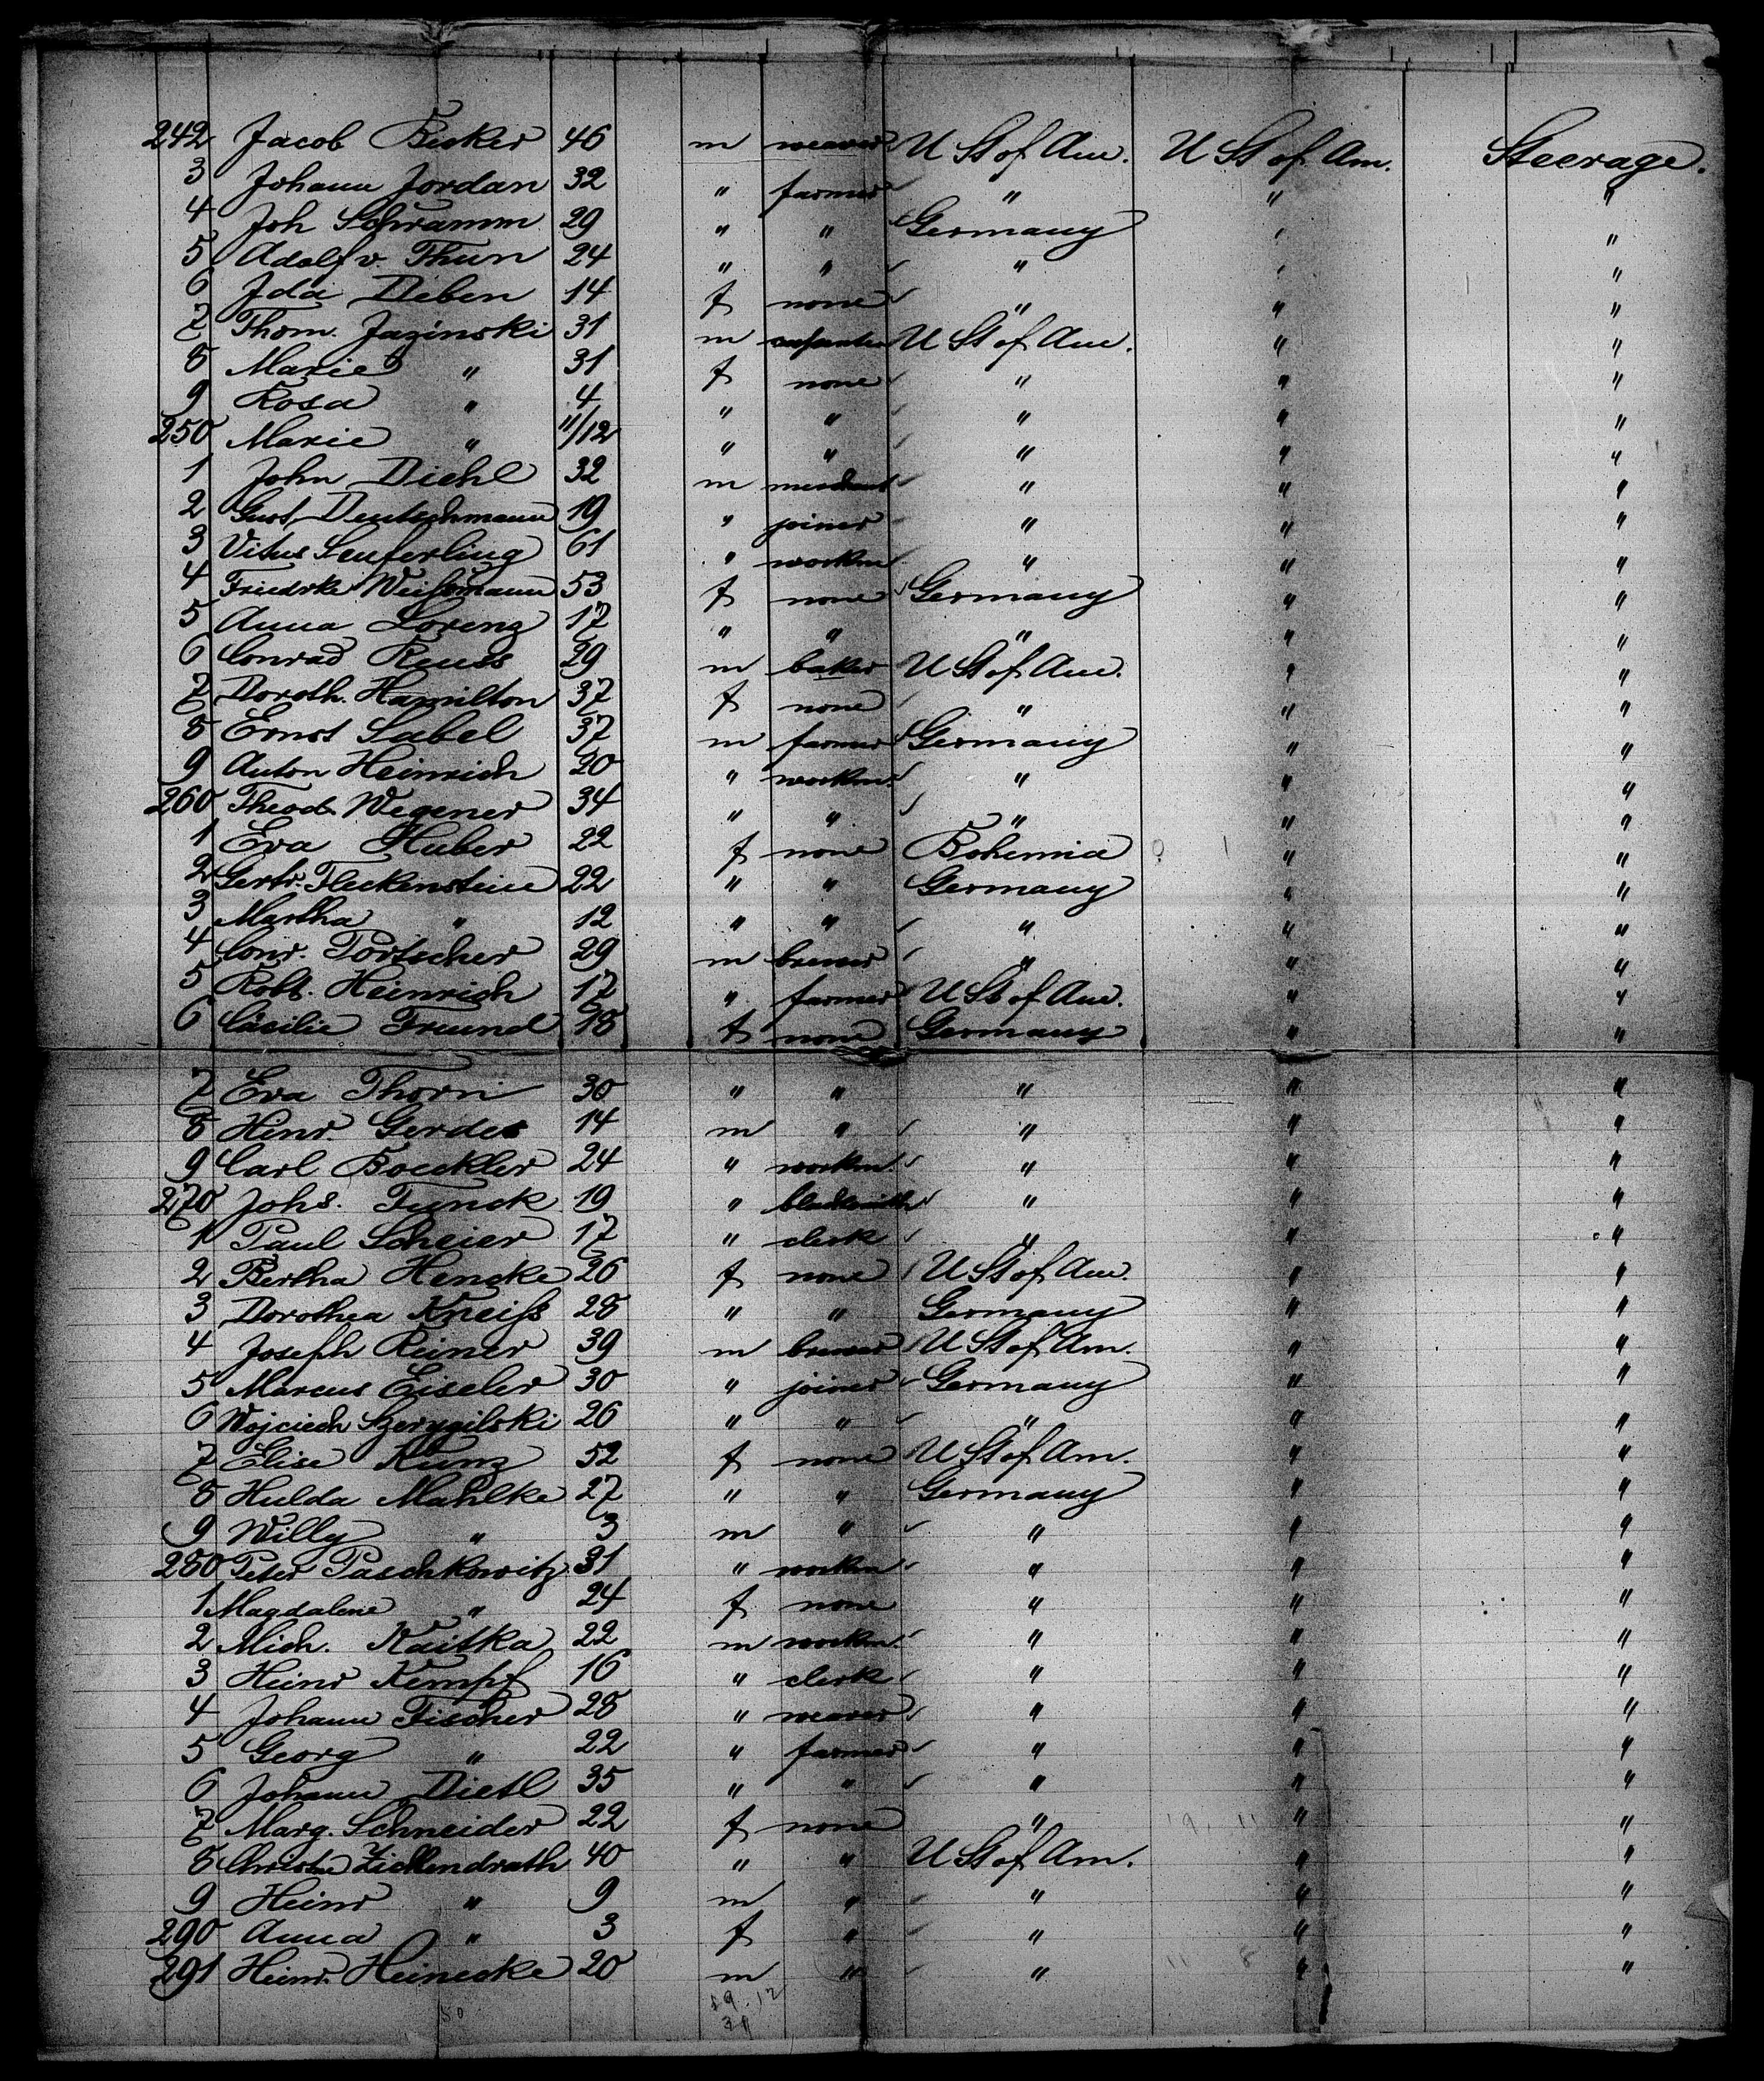 242 Jacob Becker 46 m weaver U St of Am. U St of Am. Steerage.
3 Johann Jordan 32 " farmer " " "
4 Joh Schramm 29 " " Germany " "
5 Adolf v. Thun 24 " " " " "
6 Ida Deben 14 f none " " "
7 Thom. Jazinski 31 m U St of Am. " "
8 Marie " 31 f none " " "
9 Rosa " 4 " " " " "
250 Marie " 11/12 " " " " "
1 John Diehl 32 m merchant " " "
2 Gust. Deutschmann 19 " joiner " " "
3 Vitus Seuferling 61 " workm " " "
4 Friedrke Weißmann 53 f none Germany " "
5 Anna Lorenz 17 " " " " "
6 Conrad Reuss 29 m baker U St of Am. " "
7 Doroth. Hamilton 37 f none " " "
8 Ernst Sabel 37 m farmer Germany " "
9 Anton Heinrich 20 " workm. " " "
260 Theod. Wegener 34 " " " " "
1 Eva Huber 22 f none Bohemia " "
2 Gertr. Fleckenstein 22 " " Germany " "
3 Martha " 12 " " " " "
4 Conr. Portscher 29 m brewer " " "
5 Robt. Heinrich 17 " farmer U St of Am. " "
6 Cäsilie Freund 18 f none Germany " "
7 Eva Thorn 30 " " " " "
8 Heinr. Gerdes 14 m " " " "
9 Carl Boeckler 24 " workm. " " "
270 Johs. Funck 19 " blacksmith " " "
1 Paul Scheier 17 " clerk " " "
2 Bertha Hencke 26 f none U St of Am. " "
3 Dorothea Kneiß 28 " " Germany " "
4 Joseph Reiner 39 m brewer U St of Am. " "
5 Marcus Eiseler 30 " joiner Germany " "
6 Wojciech 26 " " " " "
7 Elise Kunz 52 f none U St of Am. " "
8 Hulda Mahlke 27 " " Germany " "
9 Willy " 3 m " " " "
280 Peter Paschkowitz 31 " workm " " "
1 Magdalene " 24 f none " " "
2 Mich. Kaitka 22 m workm. " " "
3 Heinr Kempf 16 " clerk " " "
4 Johann Fischer 28 " weaver " " "
5 Georg " 22 " farmer " " "
6 Johann Dietl 35 " " " " "
7 Marg. Schneider 22 f none " " "
8 Christne Zichlendrath 40 " " U St of Am. " "
9 Heinr " 9 m " " " "
290 Anna " 3 f " " " "
291 Heinr. Heinecke 20 m " " " "